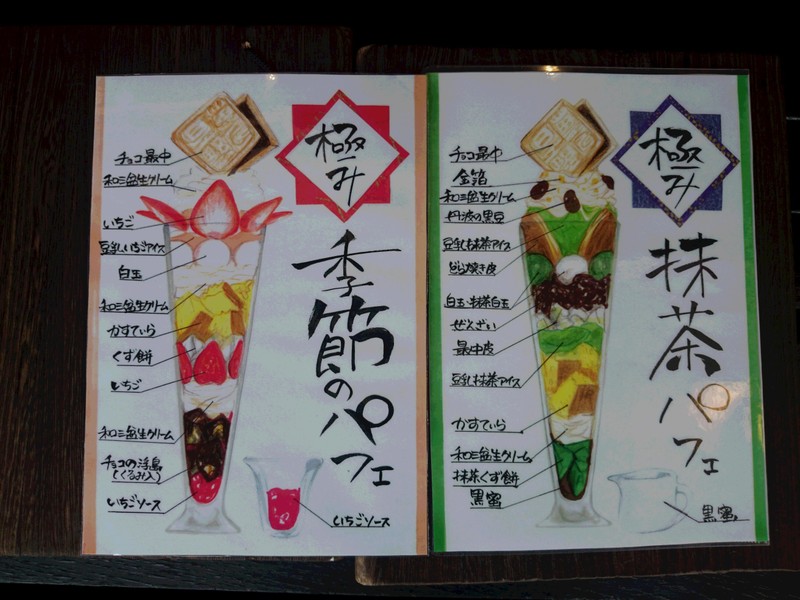 極み
季節のパフェ
チョコ最中
和三盆生クリーム
いちご
豆乳いちごアイス
白玉
和三盆生クリーム
かすてぃら
くず餅
いちご
和三盆生クリーム
チョコの浮島
(くるみ入)
いちごソース
いちごソース
極み
抹茶パフェ
チョコ最中
金箔
和三盆生クリーム
丹波の黒豆
豆乳抹茶アイス
どら焼き皮
白玉・抹茶白玉
ぜんざい
最中皮
豆乳抹茶アイス
かすてぃら
和三盆生クリーム
抹茶くず餅
黒蜜
黒蜜